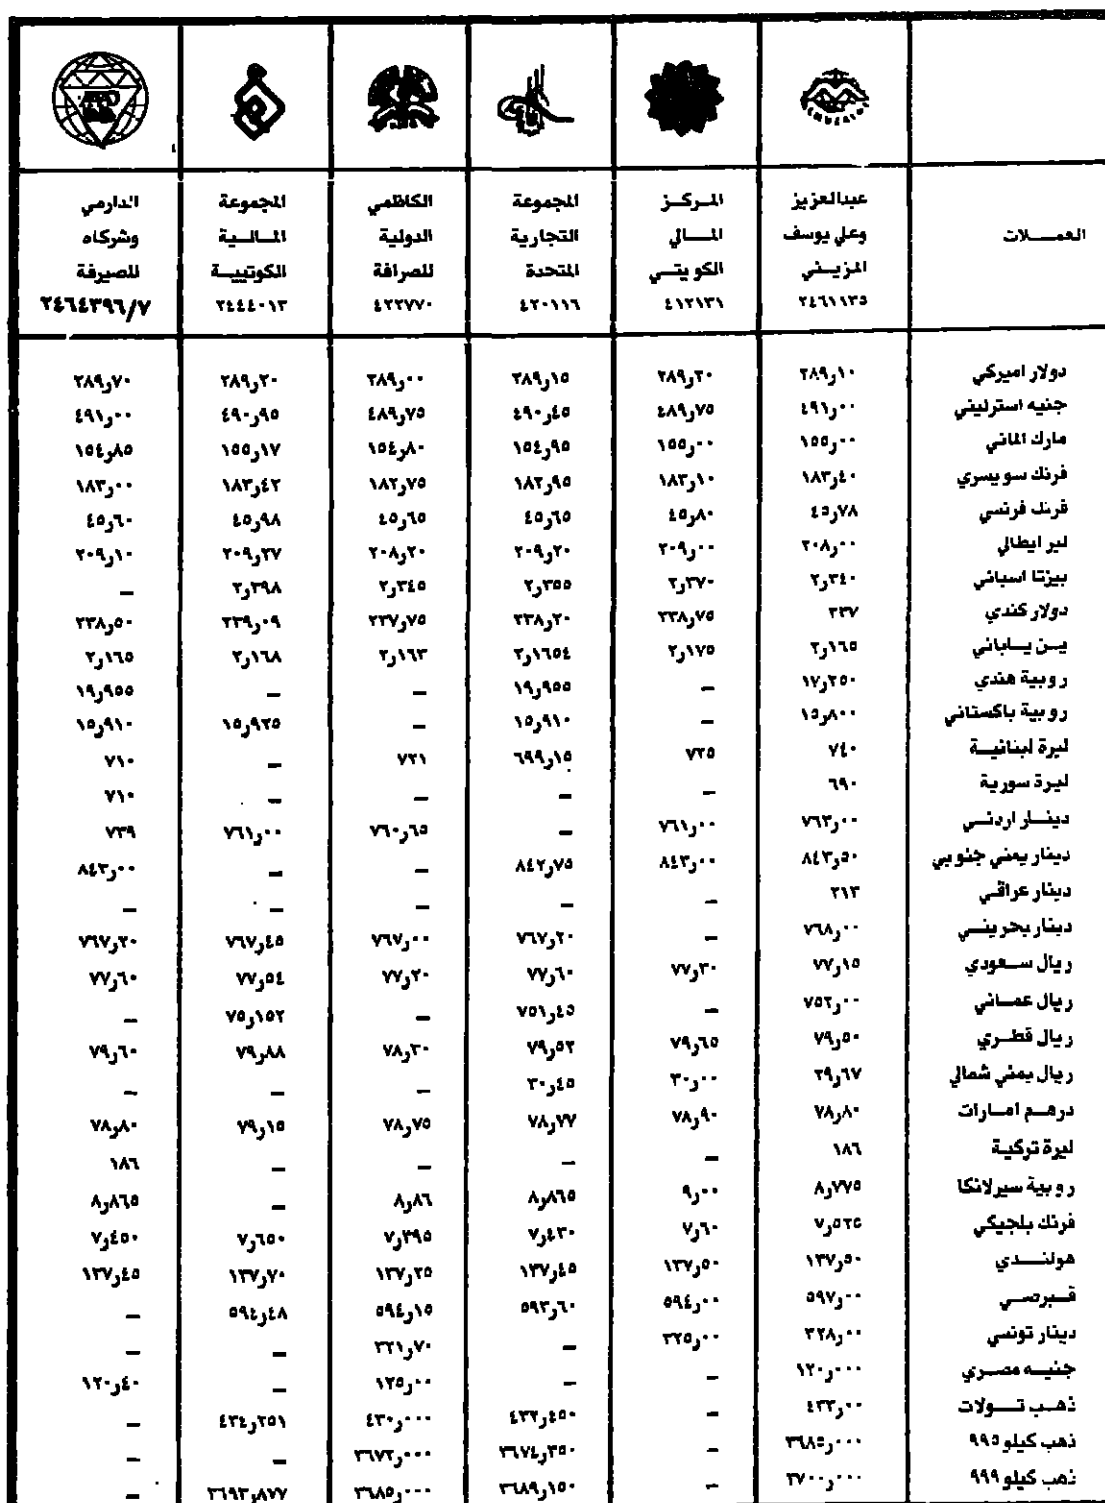 العمـــلات | عبدالعزيز وعلي يوسف المزيـني ٢٤٦١١٣٥ | المـركـز المـــالي الكويتـي ٤١٢١٣١ | المجموعة التجارية المتحدة ٤٢٠١١٦ | الكاظمي الدولية للصرافة ٤٢٢٧٧٠ | المجموعة المـالـية الكويتيـة ٢٤٤٤٠١٣ | الدارمي وشركاه للصيرفة ٢٤٦٤٣٩٦/٧
دولار اميركي | ٢٨٩٫١٠ | ٢٨٩٫٢٠ | ٢٨٩٫١٥ | ٢٨٩٫٠٠ | ٢٨٩٫٢٠ | ٢٨٩٫٧٠
جنيه استرليني | ٤٩١٫٠٠ | ٤٨٩٫٧٥ | ٤٩٠٫٤٥ | ٤٨٩٫٧٥ | ٤٩٠٫٩٥ | ٤٩١٫٠٠
مارك الماني | ١٥٥٫٠٠ | ١٥٥٫٠٠ | ١٥٤٫٩٥ | ١٥٤٫٨٠ | ١٥٥٫١٧ | ١٥٤٫٨٥
فرنك سويسري | ١٨٣٫٤٠ | ١٨٣٫١٠ | ١٨٢٫٩٥ | ١٨٢٫٧٥ | ١٨٣٫٤٢ | ١٨٣٫٠٠
فرنك فرنسي | ٤٥٫٧٨ | ٤٥٫٨٠ | ٤٥٫٦٥ | ٤٥٫٦٥ | ٤٥٫٩٨ | ٤٥٫٦٠
لير ايطالي | ٢٠٨٫٠٠ | ٢٠٩٫٠٠ | ٢٠٩٫٢٠ | ٢٠٨٫٢٠ | ٢٠٩٫٢٧ | ٢٠٩٫١٠
بيزتا اسباني | ٢٫٣٤٠ | ٢٫٣٧٠ | ٢٫٣٥٥ | ٢٫٣٤٥ | ٢٫٣٩٨ | –
دولار كندي | ٢٣٧ | ٢٣٨٫٧٥ | ٢٣٨٫٢٠ | ٢٣٧٫٧٥ | ٢٣٩٫٠٩ | ٢٣٨٫٥٠
يـن يـاباني | ٢٫١٦٥ | ٢٫١٧٥ | ٢٫١٦٥٤ | ٢٫١٦٣ | ٢٫١٦٨ | ٢٫١٦٥
روبية هندي | ١٧٫٢٥٠ | – | ١٩٫٩٥٥ | – | – | ١٩٫٩٥٥
روبية باكستاني | ١٥٫٨٠٠ | – | ١٥٫٩١٠ | – | ١٥٫٩٢٥ | ١٥٫٩١٠
ليرة لبنانيـة | ٧٤٠ | ٧٢٥ | ٦٩٩٫١٥ | ٧٢١ | – | ٧١٠
ليرة سورية | ٦٩٠ | – | – | – | – | ٧١٠
دينـار اردنـي | ٧٦٣٫٠٠ | ٧٦١٫٠٠ | – | ٧٦٠٫٦٥ | ٧٦١٫٠٠ | ٧٣٩
دينار يمني جنوبي | ٨٤٣٫٥٠ | ٨٤٣٫٠٠ | ٨٤٢٫٧٥ | – | – | ٨٤٣٫٠٠
دينار عراقي | ٢٦٣ | – | – | – | – | –
دينار بحرينـي | ٧٦٨٫٠٠ | – | ٧٦٧٫٢٠ | ٧٦٧٫٠٠ | ٧٦٧٫٤٥ | ٧٦٧٫٢٠
ريال سـعودي | ٧٧٫١٥ | ٧٧٫٣٠ | ٧٧٫٦٠ | ٧٧٫٢٠ | ٧٧٫٥٤ | ٧٧٫٦٠
ريال عمـاني | ٧٥٢٫٠٠ | – | ٧٥١٫٤٥ | – | ٧٥٫١٥٢ | –
ريال قطـري | ٧٩٫٥٠ | ٧٩٫٦٥ | ٧٩٫٥٢ | ٧٨٫٣٠ | ٧٩٫٨٨ | ٧٩٫٦٠
ريال يمني شمالي | ٢٩٫٦٧ | ٣٠٫٠٠ | ٣٠٫٤٥ | – | – | –
درهـم امـارات | ٧٨٫٨٠ | ٧٨٫٩٠ | ٧٨٫٧٧ | ٧٨٫٧٥ | ٧٩٫١٥ | ٧٨٫٨٠
ليرة تركية | ١٨٦ | – | – | – | – | ١٨٦
روبية سيرلانكا | ٨٫٧٧٥ | ٩٫٠٠ | ٨٫٨٦٥ | ٨٫٨٦ | – | ٨٫٨٦٥
فرنك بلجيكي | ٧٫٥٢٥ | ٧٫٦٠ | ٧٫٤٣٠ | ٧٫٣٩٥ | ٧٫٦٥٠ | ٧٫٤٥٠
هولنـدي | ١٣٧٫٥٠ | ١٣٧٫٥٠ | ١٣٧٫٤٥ | ١٣٧٫٢٥ | ١٣٧٫٧٠ | ١٣٧٫٤٥
قـبرصـي | ٥٩٧٫٠٠ | ٥٩٤٫٠٠ | ٥٩٣٫٦٠ | ٥٩٤٫١٥ | ٥٩٤٫٤٨ | –
دينار تونسي | ٣٢٨٫٠٠ | ٣٢٥٫٠٠ | – | ٣٢١٫٧٠ | – | –
جنيـه مصـري | ١٢٠٫٠٠٠ | – | – | ١٢٥٫٠٠ | – | ١٢٠٫٤٠
ذهـب تـولات | ٤٣٣٫٠٠ | – | ٤٣٢٫٤٥٠ | ٤٣٠٫٠٠٠ | ٤٣٤٫٢٥١ | –
ذهب كيلو ٩٩٥ | ٣٦٨٥٫٠٠٠ | – | ٣٦٧٤٫٣٥٠ | ٣٦٧٢٫٠٠٠ | – | –
ذهب كيلو ٩٩٩ | ٣٧٠٠٫٠٠٠ | – | ٣٦٨٩٫١٥٠ | ٣٦٨٥٫٠٠٠ | ٣٦٩٣٫٨٧٧ | –